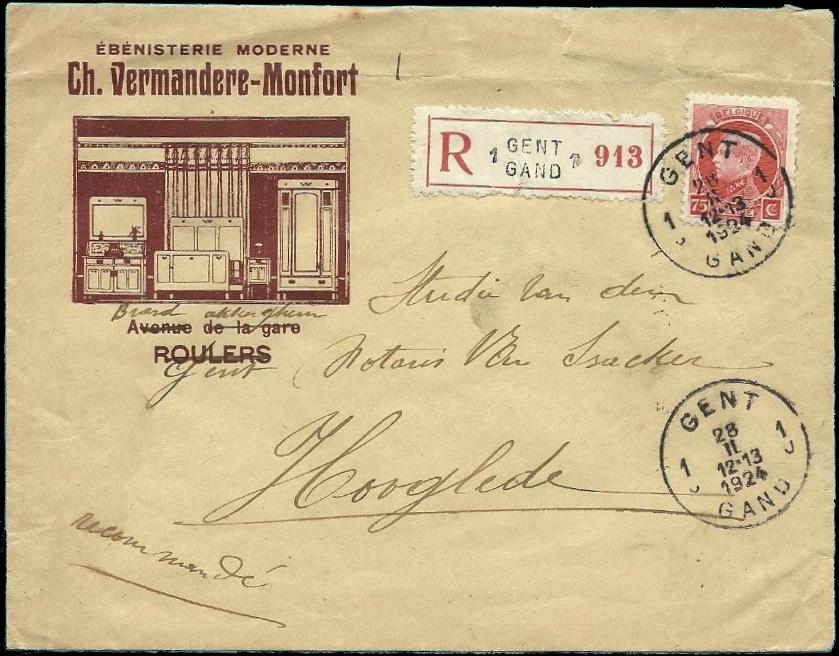 ÉBÉNISTERIE MODERNE
Ch. Vermandere-Monfort
R 1 GENT GAND 1 913
BELGIQUE
75 C
GENT
1 1
28
II
12-13
1924
GAND
Avenue de la gare
ROULERS
Gent
Studie van den
Notaris Van Isacker
Hooglede
GENT
1 1
28
II
12-13
1924
GAND
recommandé